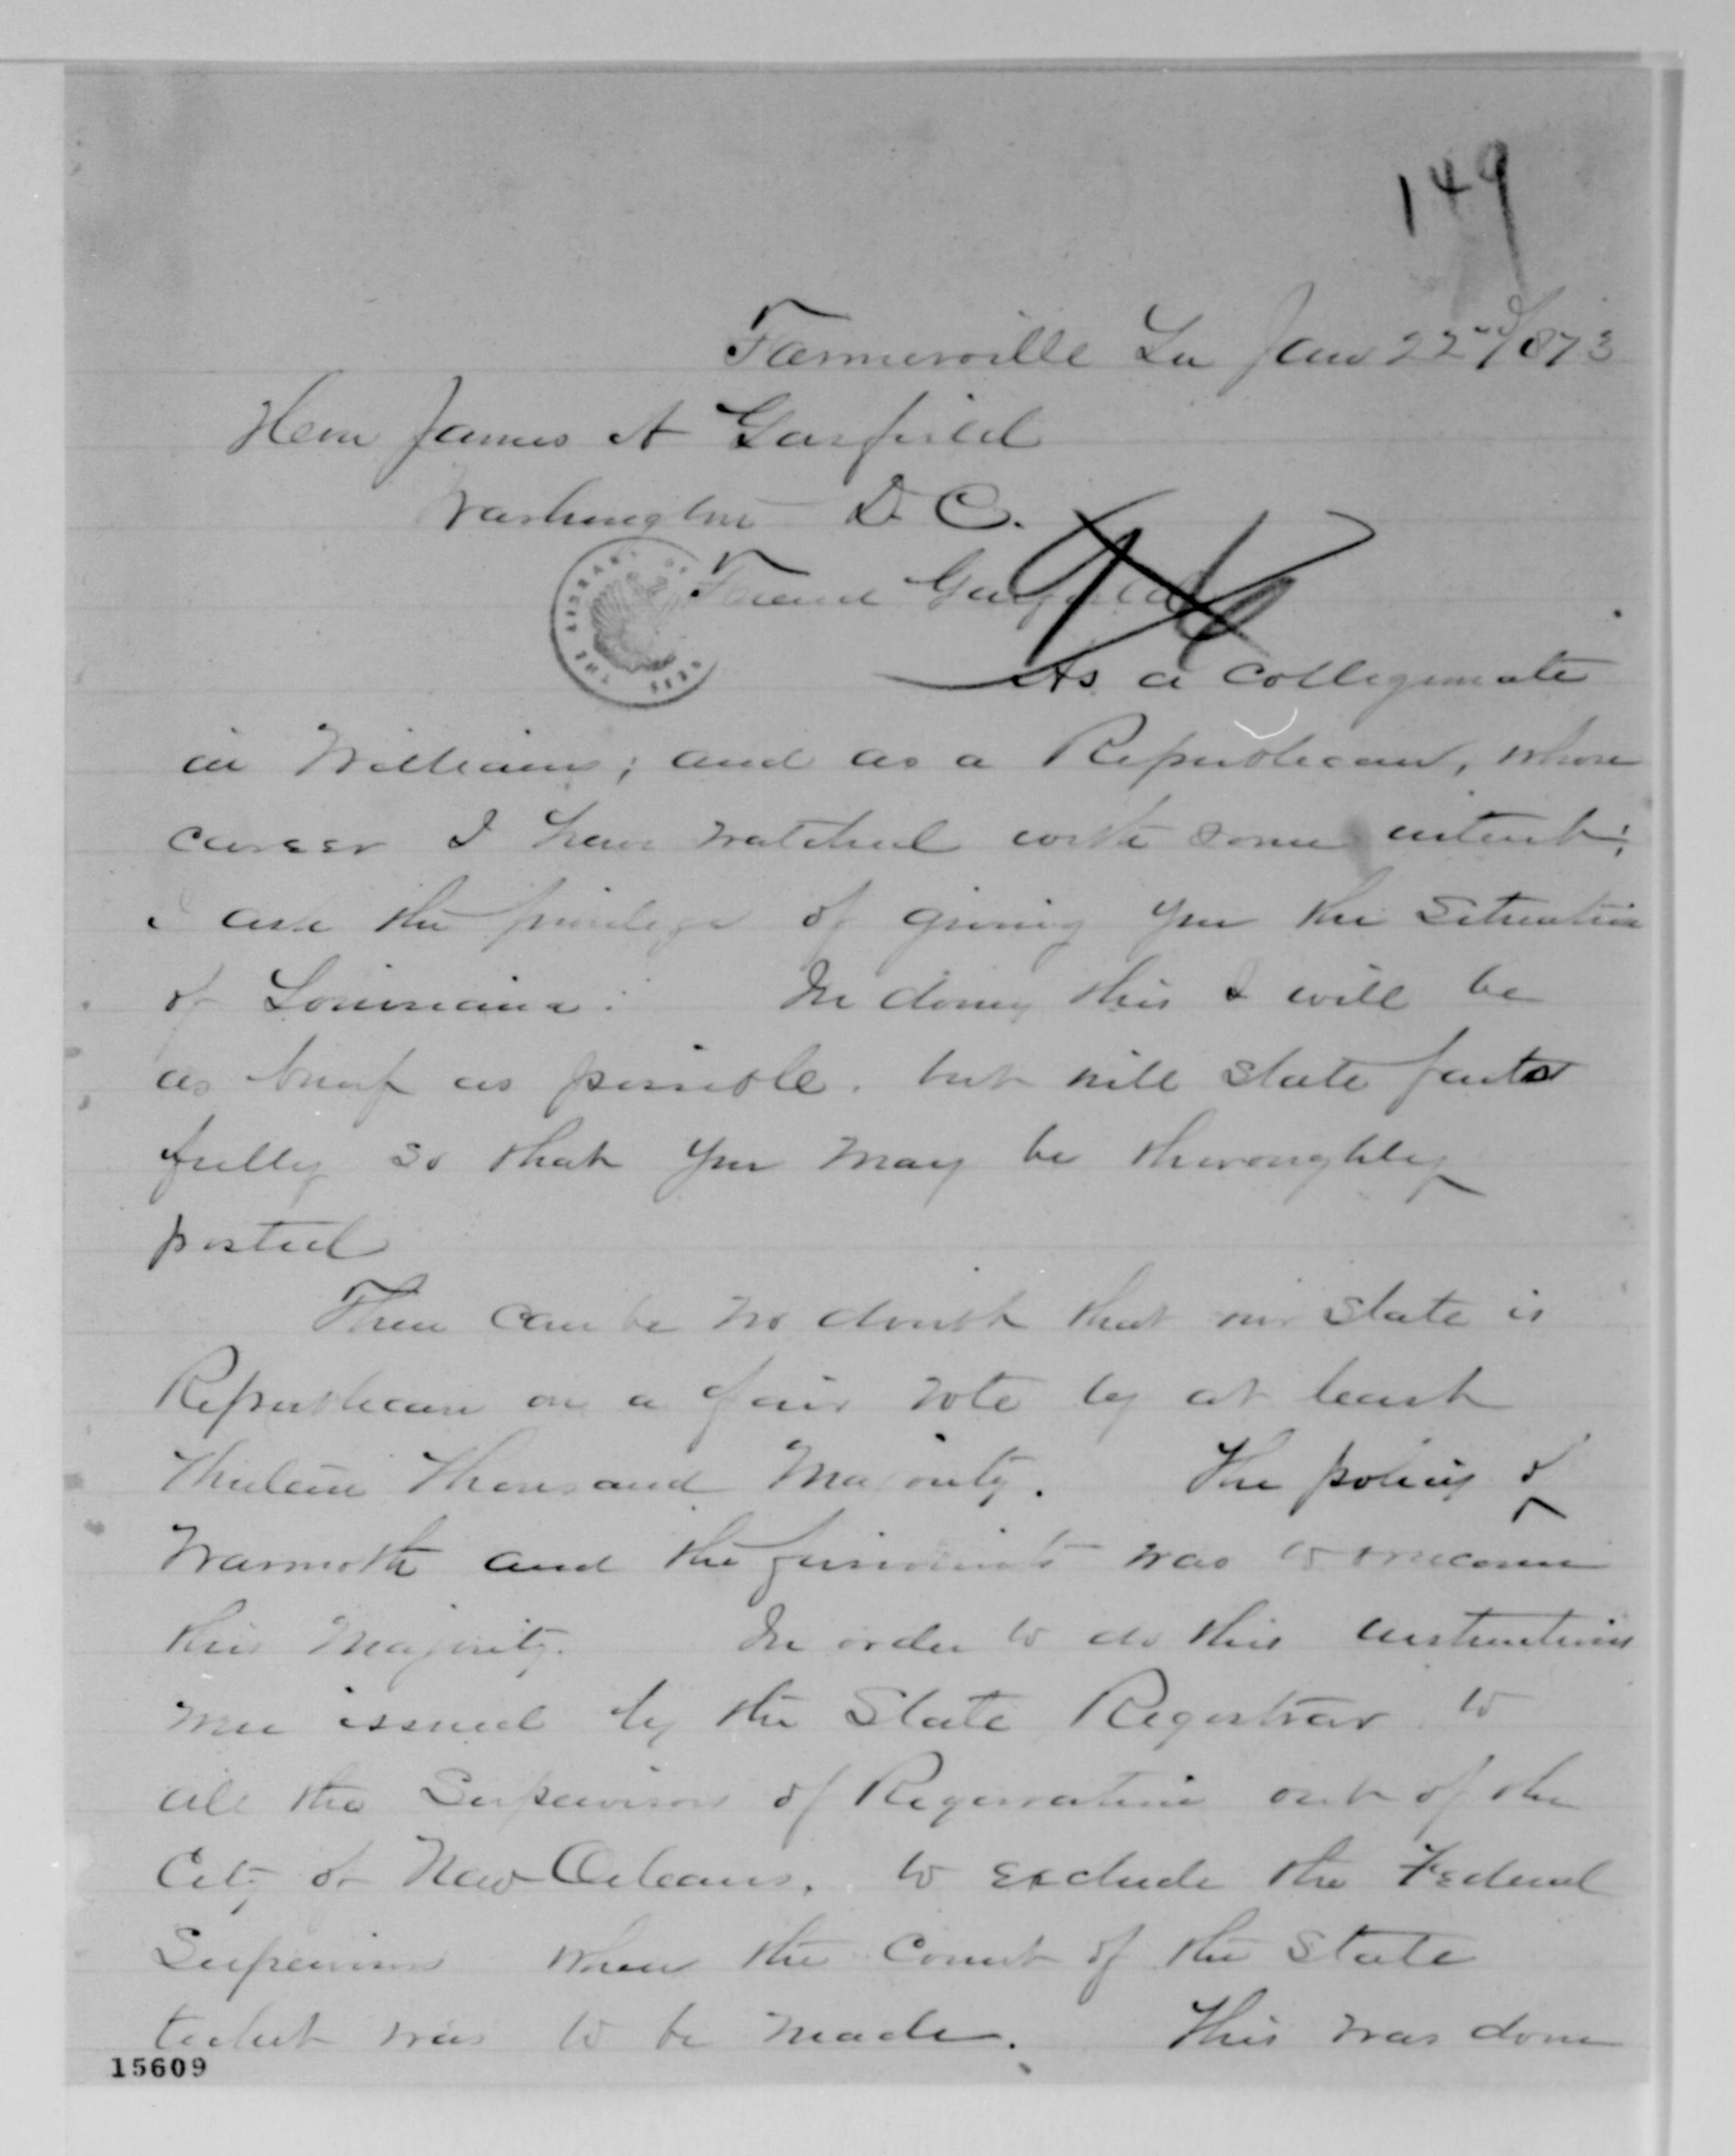 149
Farmerville La Jany 22nd/1873
Hon James A Garfield
Washington D. C.
Friend Garfield
As a collegemate
in Williams; and as a Republican, whose
career I have watched with some interest;
I ask the privilege of giving you the situation
of Louisiana: In doing this I will be
as brief as possible. but will state facts
fully so that you may be thoroughly
posted
There can be no doubt that our State is
Republican on a fair vote by at least
thousand Majority. The policy of
Warmoth and the fusionists was to overcome
this Majority. In order to do this instructions
were issued by the State Registrar to
all the Supervisors of Registration out of the
City of New Orleans, to exclude the Federal
Supervisors when the Count of the State
ticket was to be made. This was done
THE LIBRARY OF
15609